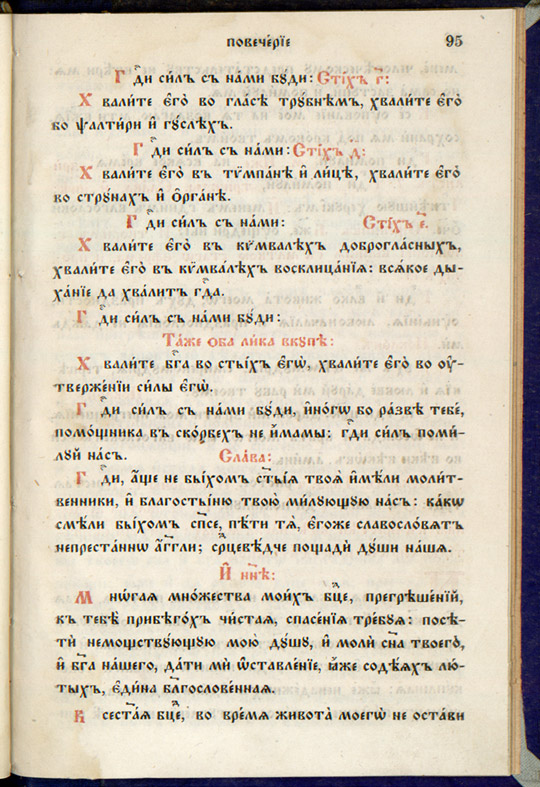 повече́рїе 95
Гдⷭ҇и си́лъ съ на́ми бꙋ́ди: Сті́хъ г҃:
Хвали́те є҆го̀ во гла́сѣ трꙋ́бнѣмъ, хвали́те є҆го̀
во ѱалти́ри и҆ гꙋ́слехъ.
Гдⷭ҇и си́лъ съ на́ми: Сті́хъ д҃:
Хвали́те є҆го̀ въ тѷмпа́нѣ и҆ ли́цѣ, хвали́те є҆го̀
во стрꙋ́нахъ и҆ ѻ҆рга́нѣ.
Гдⷭ҇и си́лъ съ на́ми: Сті́хъ є҃.
Хвали́те є҆го̀ въ кѷмва́лѣхъ доброгла́сныхъ,
хвали́те є҆го̀ въ кѷмва́лѣхъ восклица́нїѧ: всѧ́кое ды-
ха́нїе да хва́литъ гдⷭ҇а.
Гдⷭ҇и си́лъ съ на́ми бꙋ́ди:
Та́же ѻба ли́ка вкꙋ́пѣ:
Хвали́те бг҃а во ст҃ы́хъ є҆гѡ̀, хвали́те є҆го̀ во оу҆-
тверже́нїи си́лы є҆гѡ̀.
Гдⷭ҇и си́лъ съ на́ми бꙋ́ди, и҆но́гѡ бо ра́звѣ тебє̀,
помо́щника въ ско́рбехъ не и҆́мамы: гдⷭ҇и си́лъ поми́-
лꙋй на́съ. Сла́ва:
Гдⷭ҇и, а҆́ще не бы́хомъ ст҃ы̑ѧ твоѧ̑ и҆мѣ́ли моли́т-
вєнники, и҆ благосты́ню твою̀ ми́лꙋющꙋю на́съ: ка́кѡ
смѣ́ли бы́хомъ сп҃се, пѣ́ти тѧ̀, є҆го́же славосло́вѧтъ
непреста́ннѡ а҆́гг҃ли; срⷣцевѣ́дче пощадѝ дꙋ́шы на́шѧ.
И҆ нн҃ѣ:
Мнѡ́гаѧ мнѡ́жєства мои́хъ бцⷣе, прегрѣше́нїй,
къ тебѣ̀ прибѣго́хъ чи́стаѧ, спасе́нїѧ тре́бꙋѧ: посѣ-
тѝ немощствꙋ́ющꙋю мою̀ дꙋ́шꙋ, и҆ молѝ сн҃а твоего̀,
и҆ бг҃а на́шегѡ, да́ти мѝ ѡ҆ставле́нїе, ꙗ҆̀же содѣ́ѧхъ лю́-
тыхъ, є҆ди́на блгⷭ҇ове́ннаѧ.
Всест҃а́ѧ бцⷣе, во вре́мѧ живота̀ моегѡ̀ не ѡ҆ста́ви